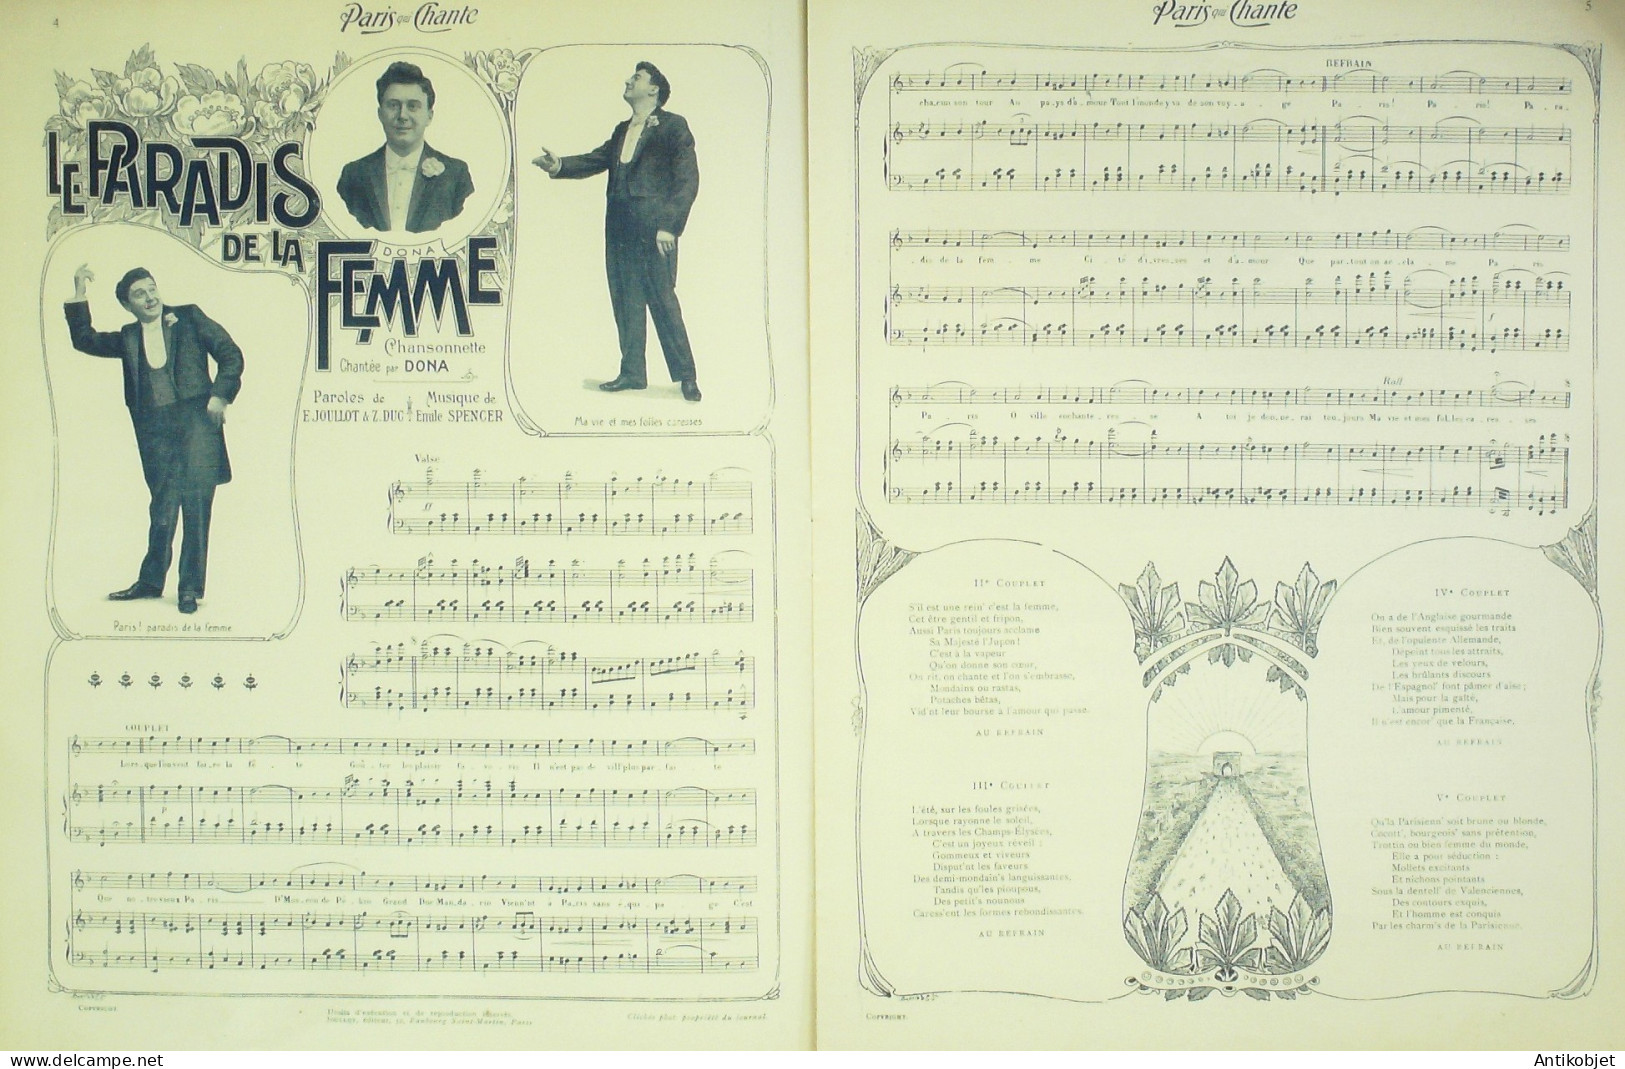 4
Paris qui Chante
LE PARADIS
DE LA
FEMME
DONA
Chansonnette
Chantée par DONA
Paroles de
E. JOULLOT & Z. DUC
Musique de
Emile SPENCER
Ma vie et mes folles caresses
Paris! paradis de la femme
Valse
ff
COUPLET
Lors-que l'on veut fai-re la fê-te Goû-ter les plaisirs fa-vo-ris Il n'est pas de vill' plus par-fai-te
p
Que no-tre vieux Pa-ris D'Mos-cou de Pé-kin Grand Duc Man-da-rin Vienn'nt à Pa-ris sans é-qui-pa-ge C'est
COPYRIGHT
Droits d'exécution et de reproduction réservés.
Clichés phot. propriété du journal.
Paris qui Chante
5
REFRAIN
cha-cun son tour Au pa-ys d'a-mour Tout l'monde y va de son voy-a-ge Pa-ris! Pa-ris! Pa-ra-
dis de la fem-me Ci-té d'i-vres-ses et d'a-mour Que par-tout on ac-cla-me Pa-ris
f
Rall
Pa-ris O ville enchante-res-se A toi je don-ne-rai tou-jours Ma vie et mes fol-les ca-res-ses
IIe COUPLET
S'il est une rein' c'est la femme,
Cet être gentil et fripon,
Aussi Paris toujours acclame
Sa Majesté l'Jupon!
C'est à la vapeur
Qu'on donne son cœur,
On rit, on chante et l'on s'embrasse,
Mondains ou rastas,
Potaches bêtas,
Vid'nt leur bourse à l'amour qui passe.
AU REFRAIN
IIIe COUPLET
L'été, sur les foules grisées,
Lorsque rayonne le soleil,
A travers les Champs-Élysées,
C'est un joyeux réveil :
Gommeux et viveurs
Disput'nt les faveurs
Des demi-mondain's languissantes,
Tandis qu'les pioupous,
Des petit's nounous
Caress'ent les formes rebondissantes.
AU REFRAIN
IVe COUPLET
On a de l'Anglaise gourmande
Bien souvent esquissé les traits
Et, de l'opulente Allemande,
Dépeint tous les attraits,
Les yeux de velours,
Les brûlants discours
De l'Espagnol' font pâmer d'aise ;
Mais pour la gaîté,
L'amour pimenté,
Il n'est encor' que la Française.
AU REFRAIN
Ve COUPLET
Qu'la Parisienn' soit brune ou blonde,
Cocott', bourgeois' sans prétention,
Trottin ou bien femme du monde,
Elle a pour séduction :
Mollets excitants
Et nichons pointants
Sous la dentell' de Valenciennes,
Des contours exquis,
Et l'homme est conquis
Par les charm's de la Parisienne.
AU REFRAIN
COPYRIGHT
Antikobjet